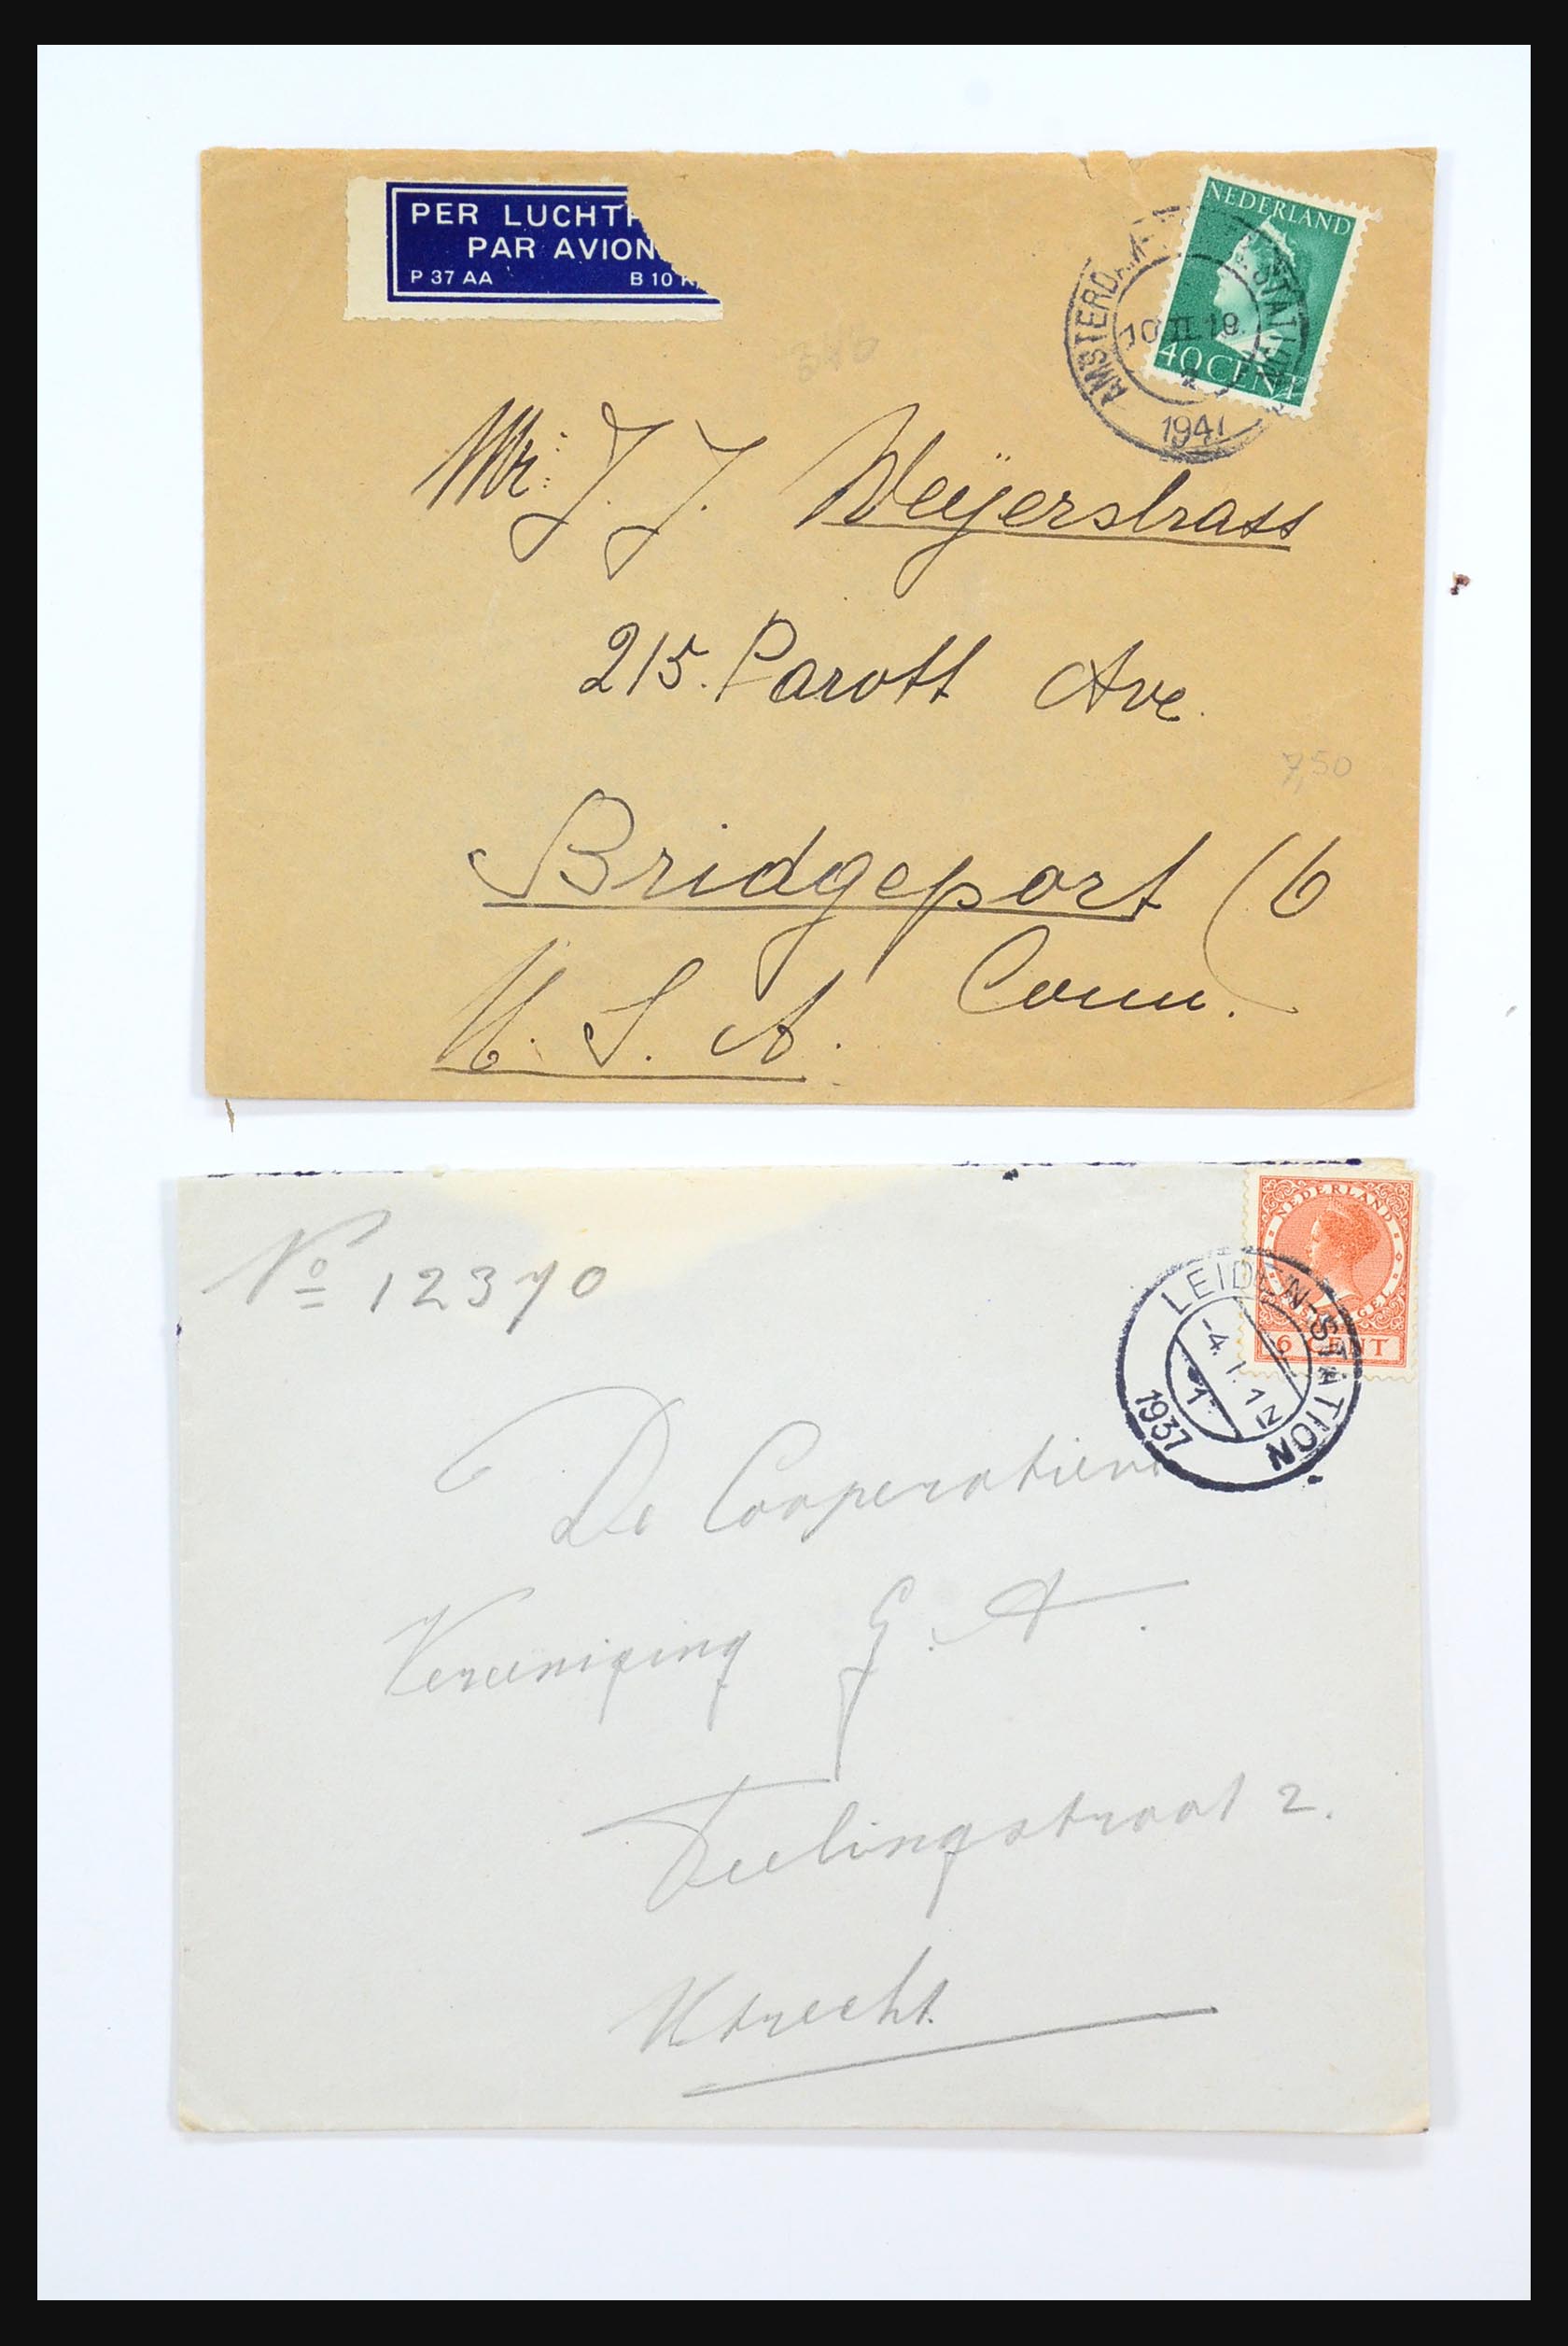 PER LUCHTP
PAR AVION
P 37 AA B 10
NEDERLAND
40 CENT
AMSTERDAM STATION
10 II 18
2
1947
Mr: J. J. Weyerstrass
215. Parott Ave.
7,50
Bridgeport (6
Conn.
U. S. A.
No 12370
NEDERLAND
6 CENT
LEIDEN-STATION
-4. I. 12
1
1937
De Cooperatieve
Vereeniging G. A.
Teelingstraat 2.
Utrecht.